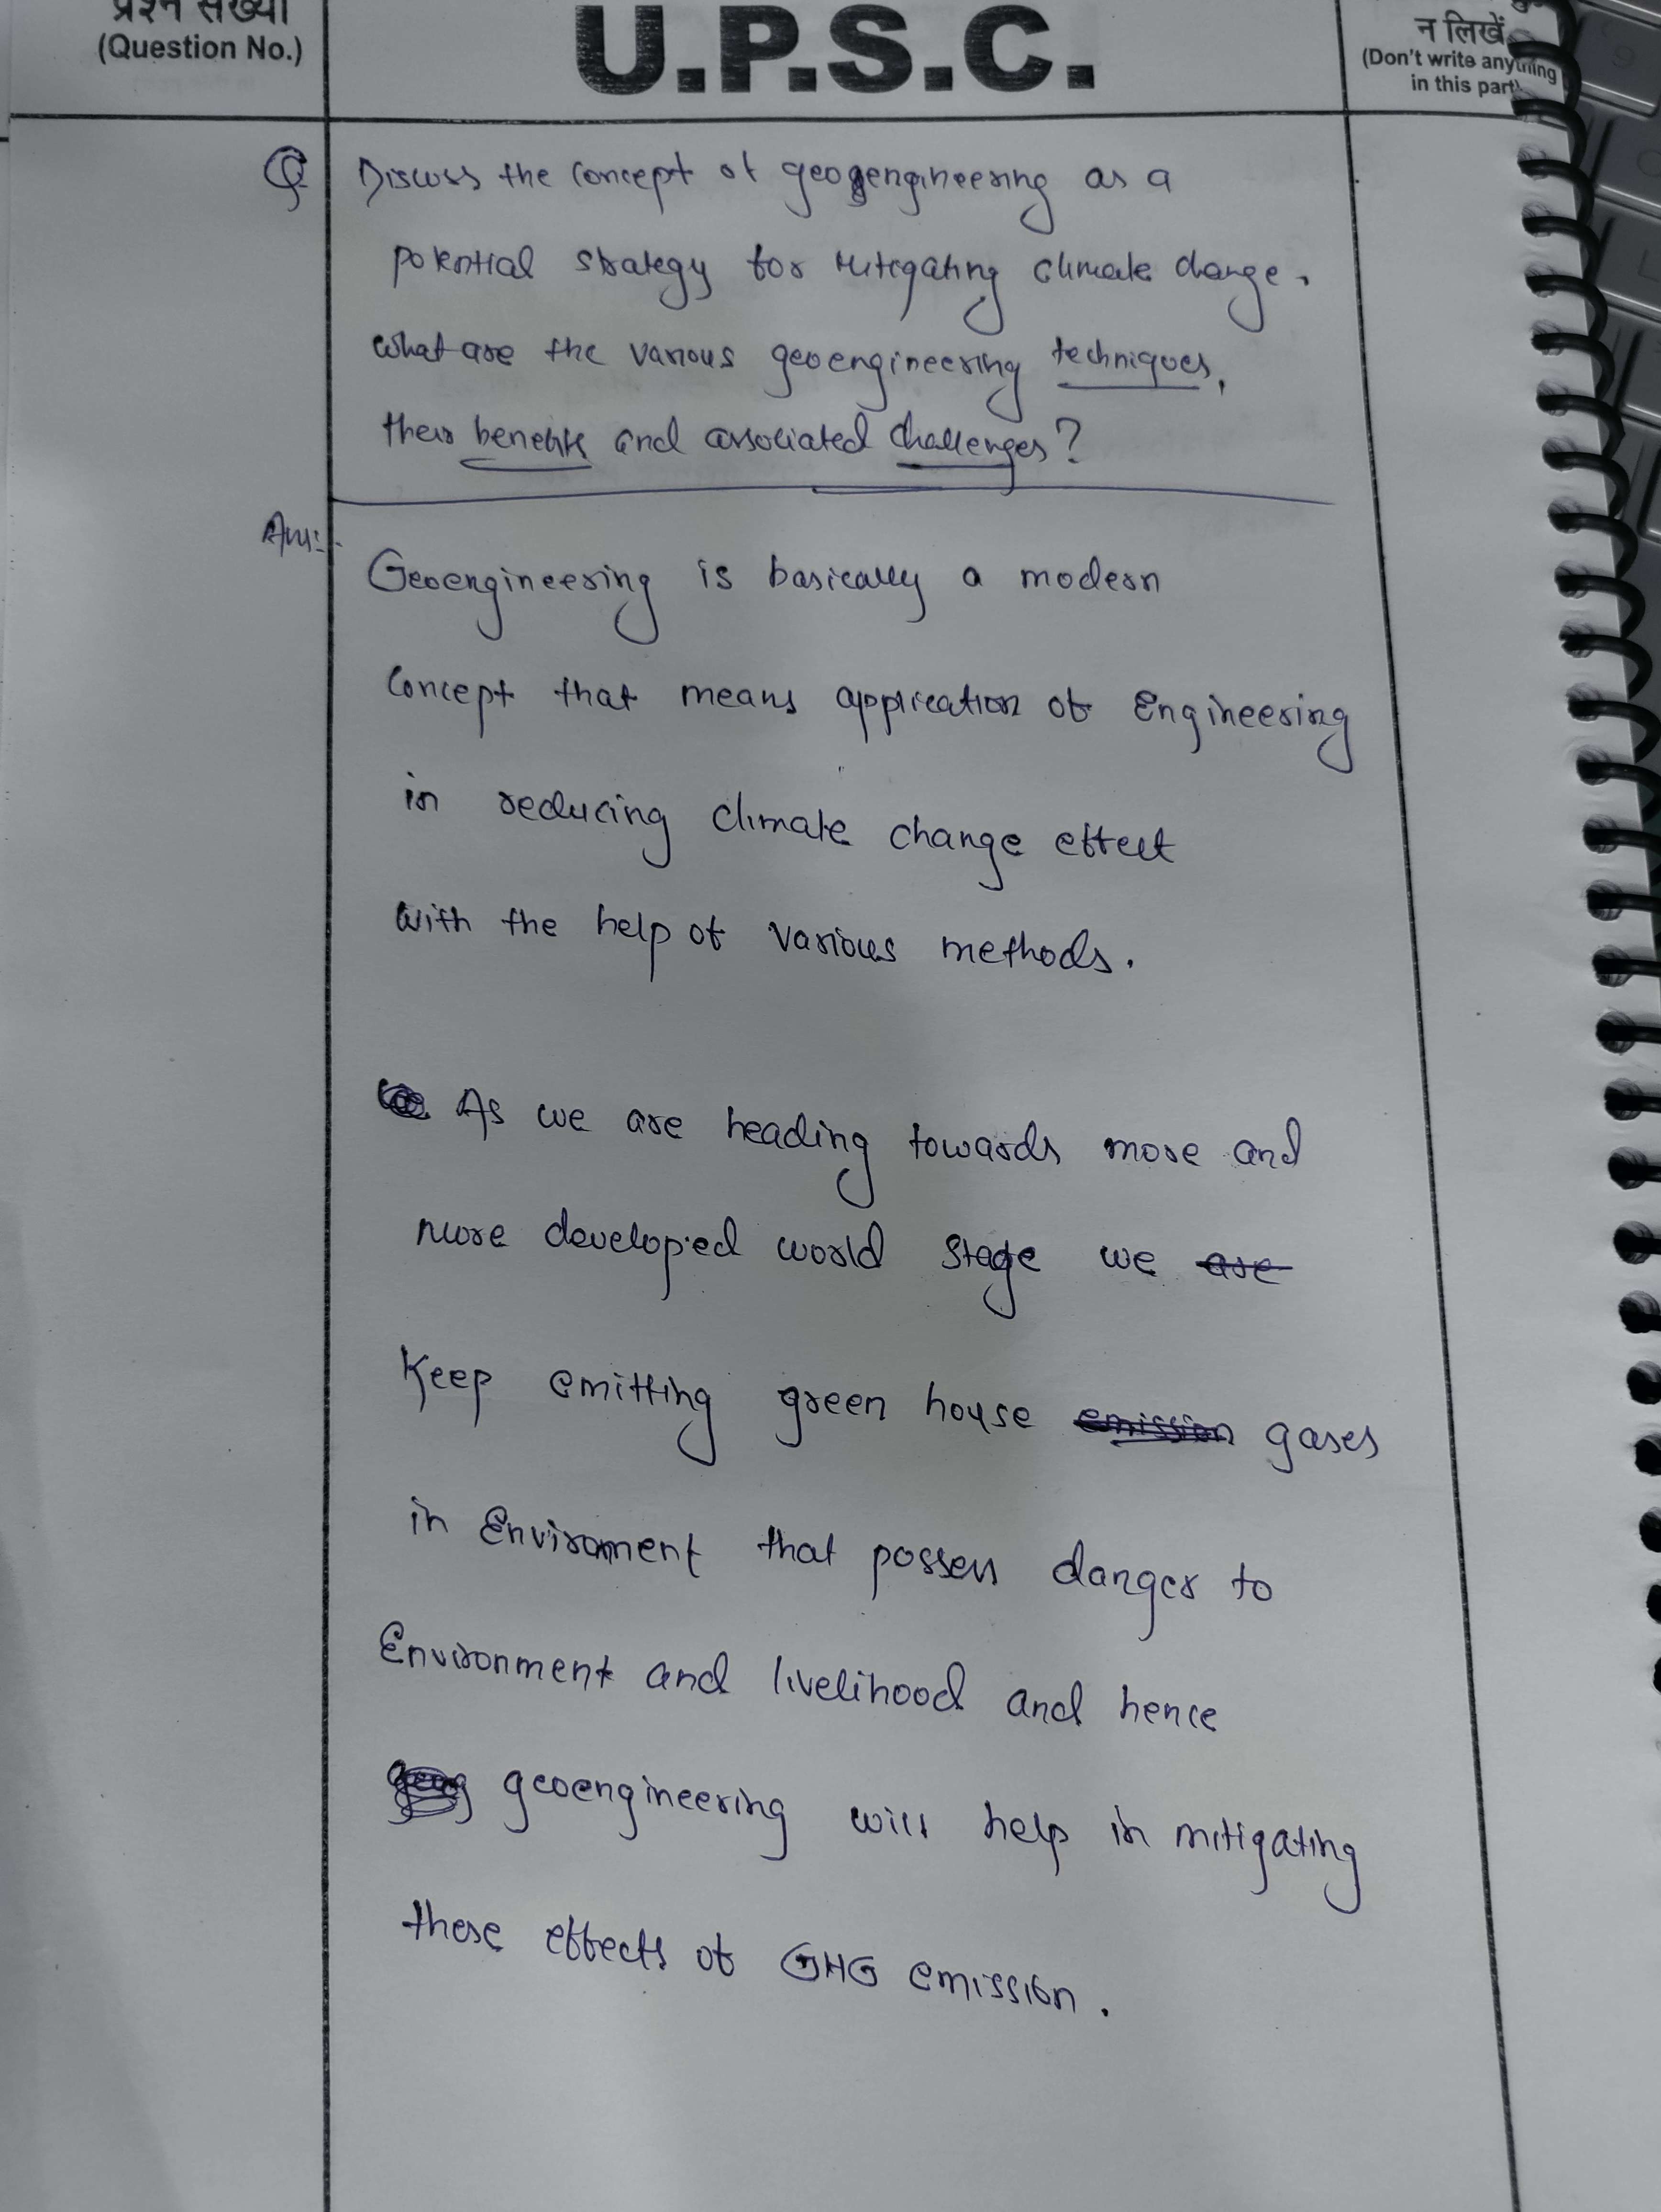 प्रश्न संख्या
(Question No.)
U.P.S.C.
न लिखें
(Don't write anything
in this part)
Q Discuss the concept of geogengineering as a
potential strategy for mitigating climate change.
What are the various geoengineering techniques,
their benefits and associated challenges?
Ans:-
Geoengineering is basically a modern
concept that means application of Engineering
in reducing climate change effect
with the help of various methods.
As we are heading towards more and
more developed world stage we are
Keep emitting green house emission gases
in Enviroment that possess danger to
Environment and livelihood and hence
geoengineering will help in mitigating
these effects of GHG emission.